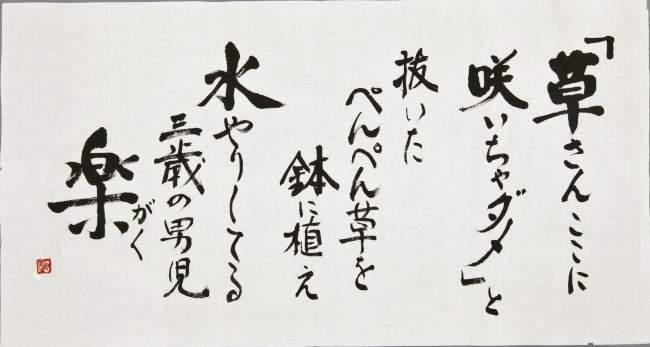 「草さんここに
咲いちゃダメ」と
抜いた
ぺんぺん草を
鉢に植え
水やりしてる
三歳の男児
がく
楽